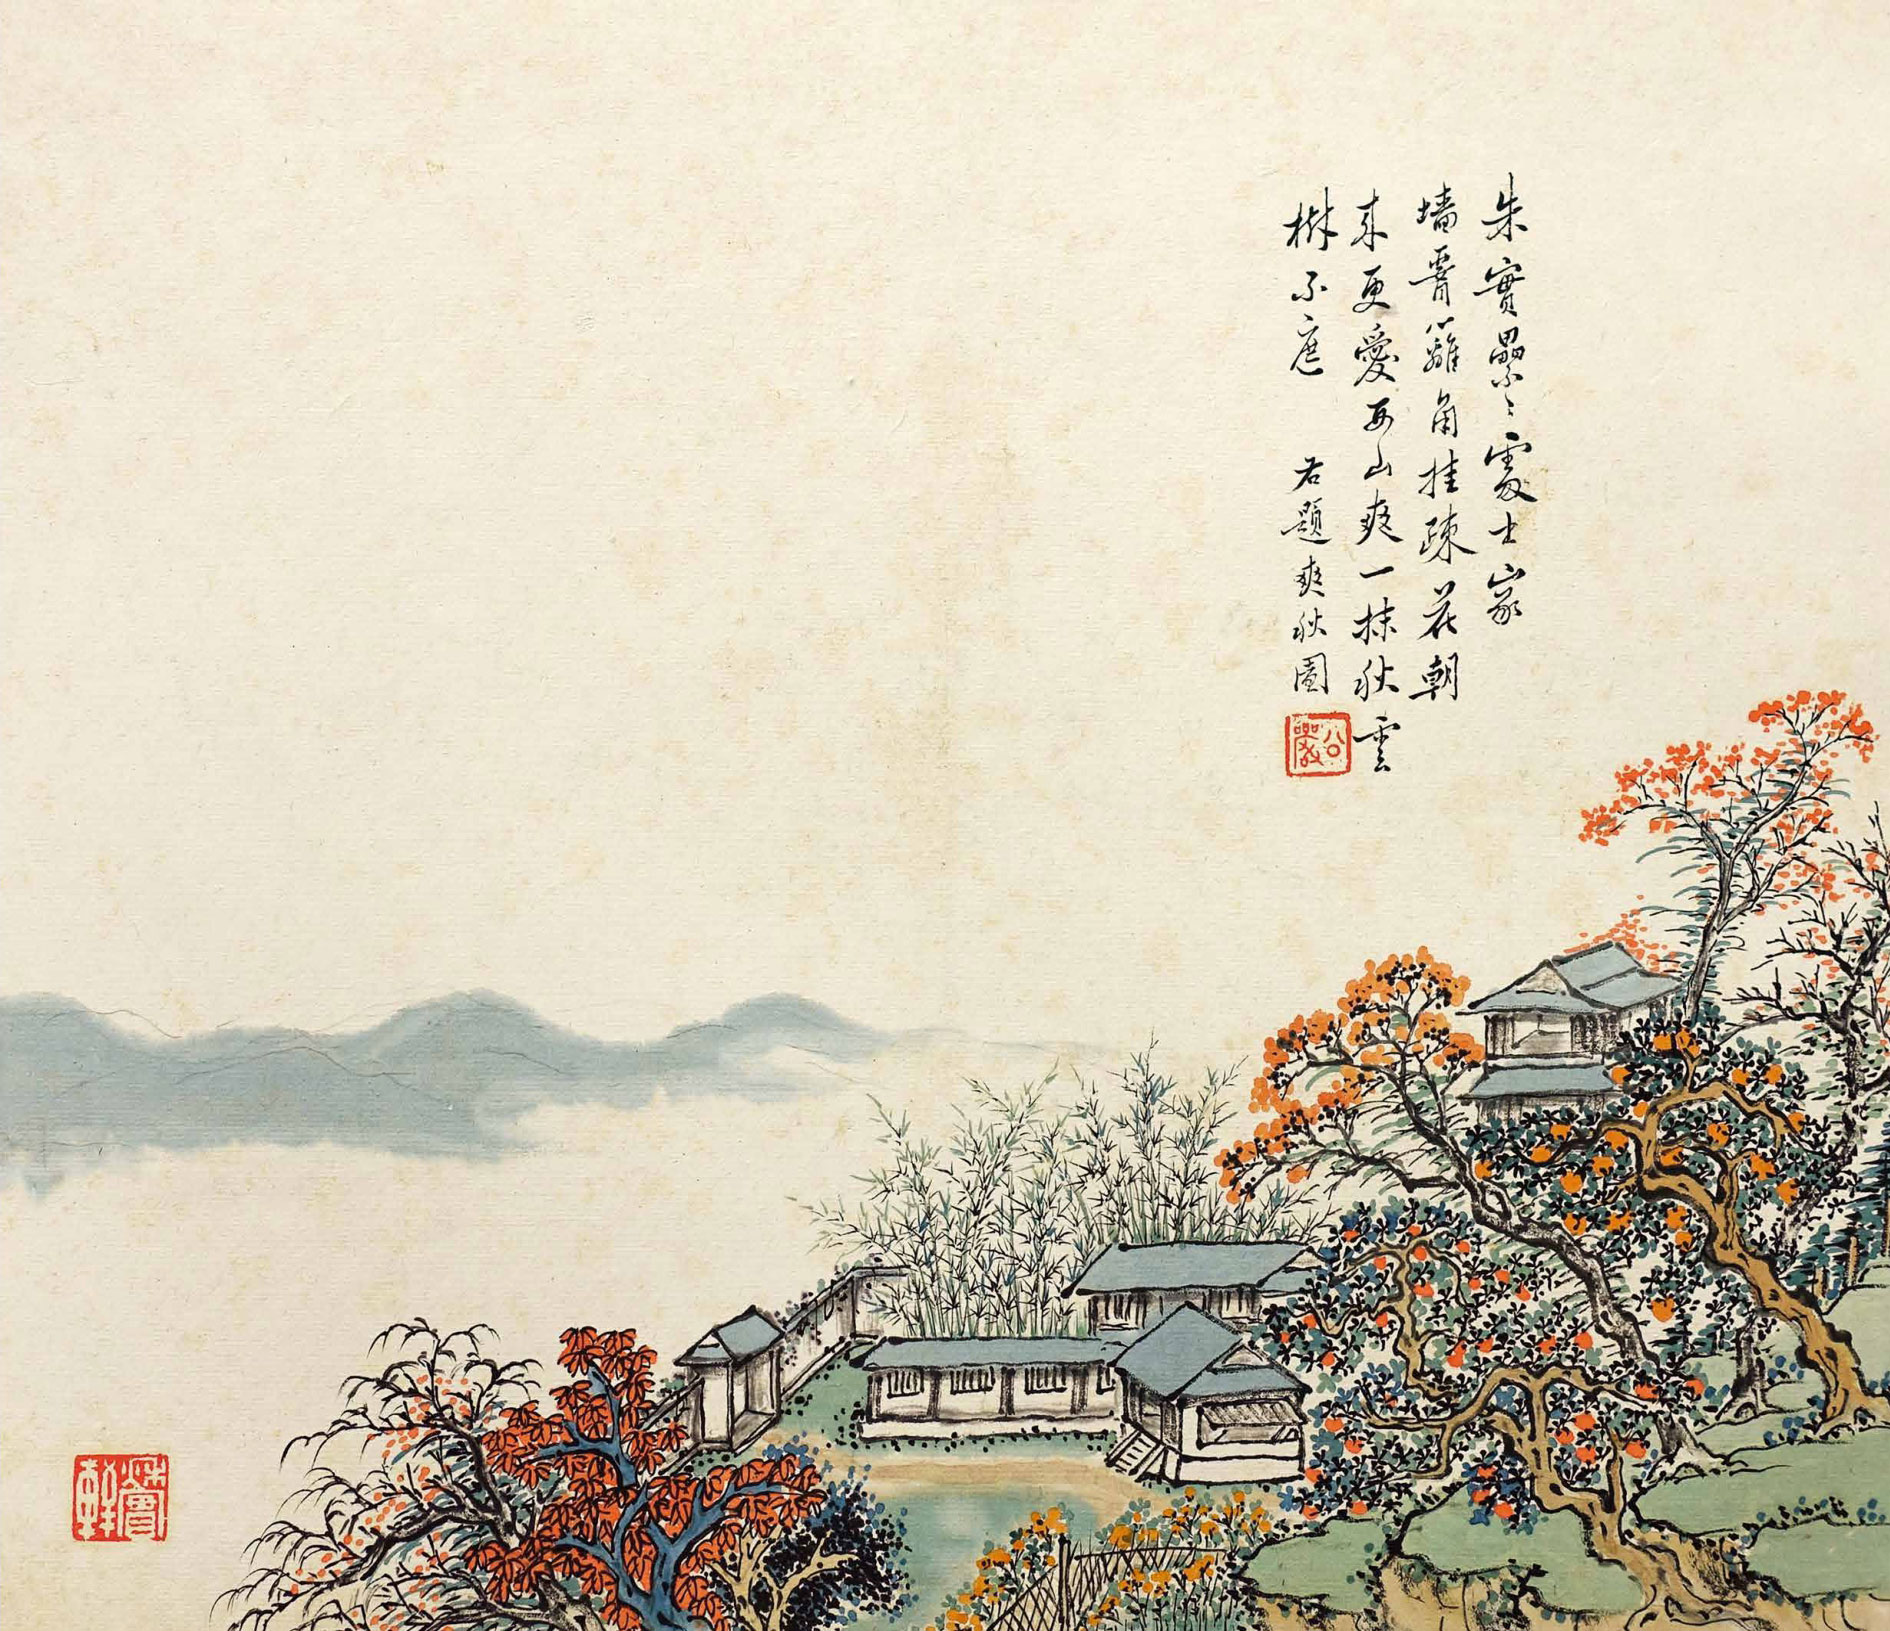 朱實纍〻處士家
墻脣籬角挂疎花朝
来更愛西山爽一抹秋雲
樹不遮 右題爽秋圖